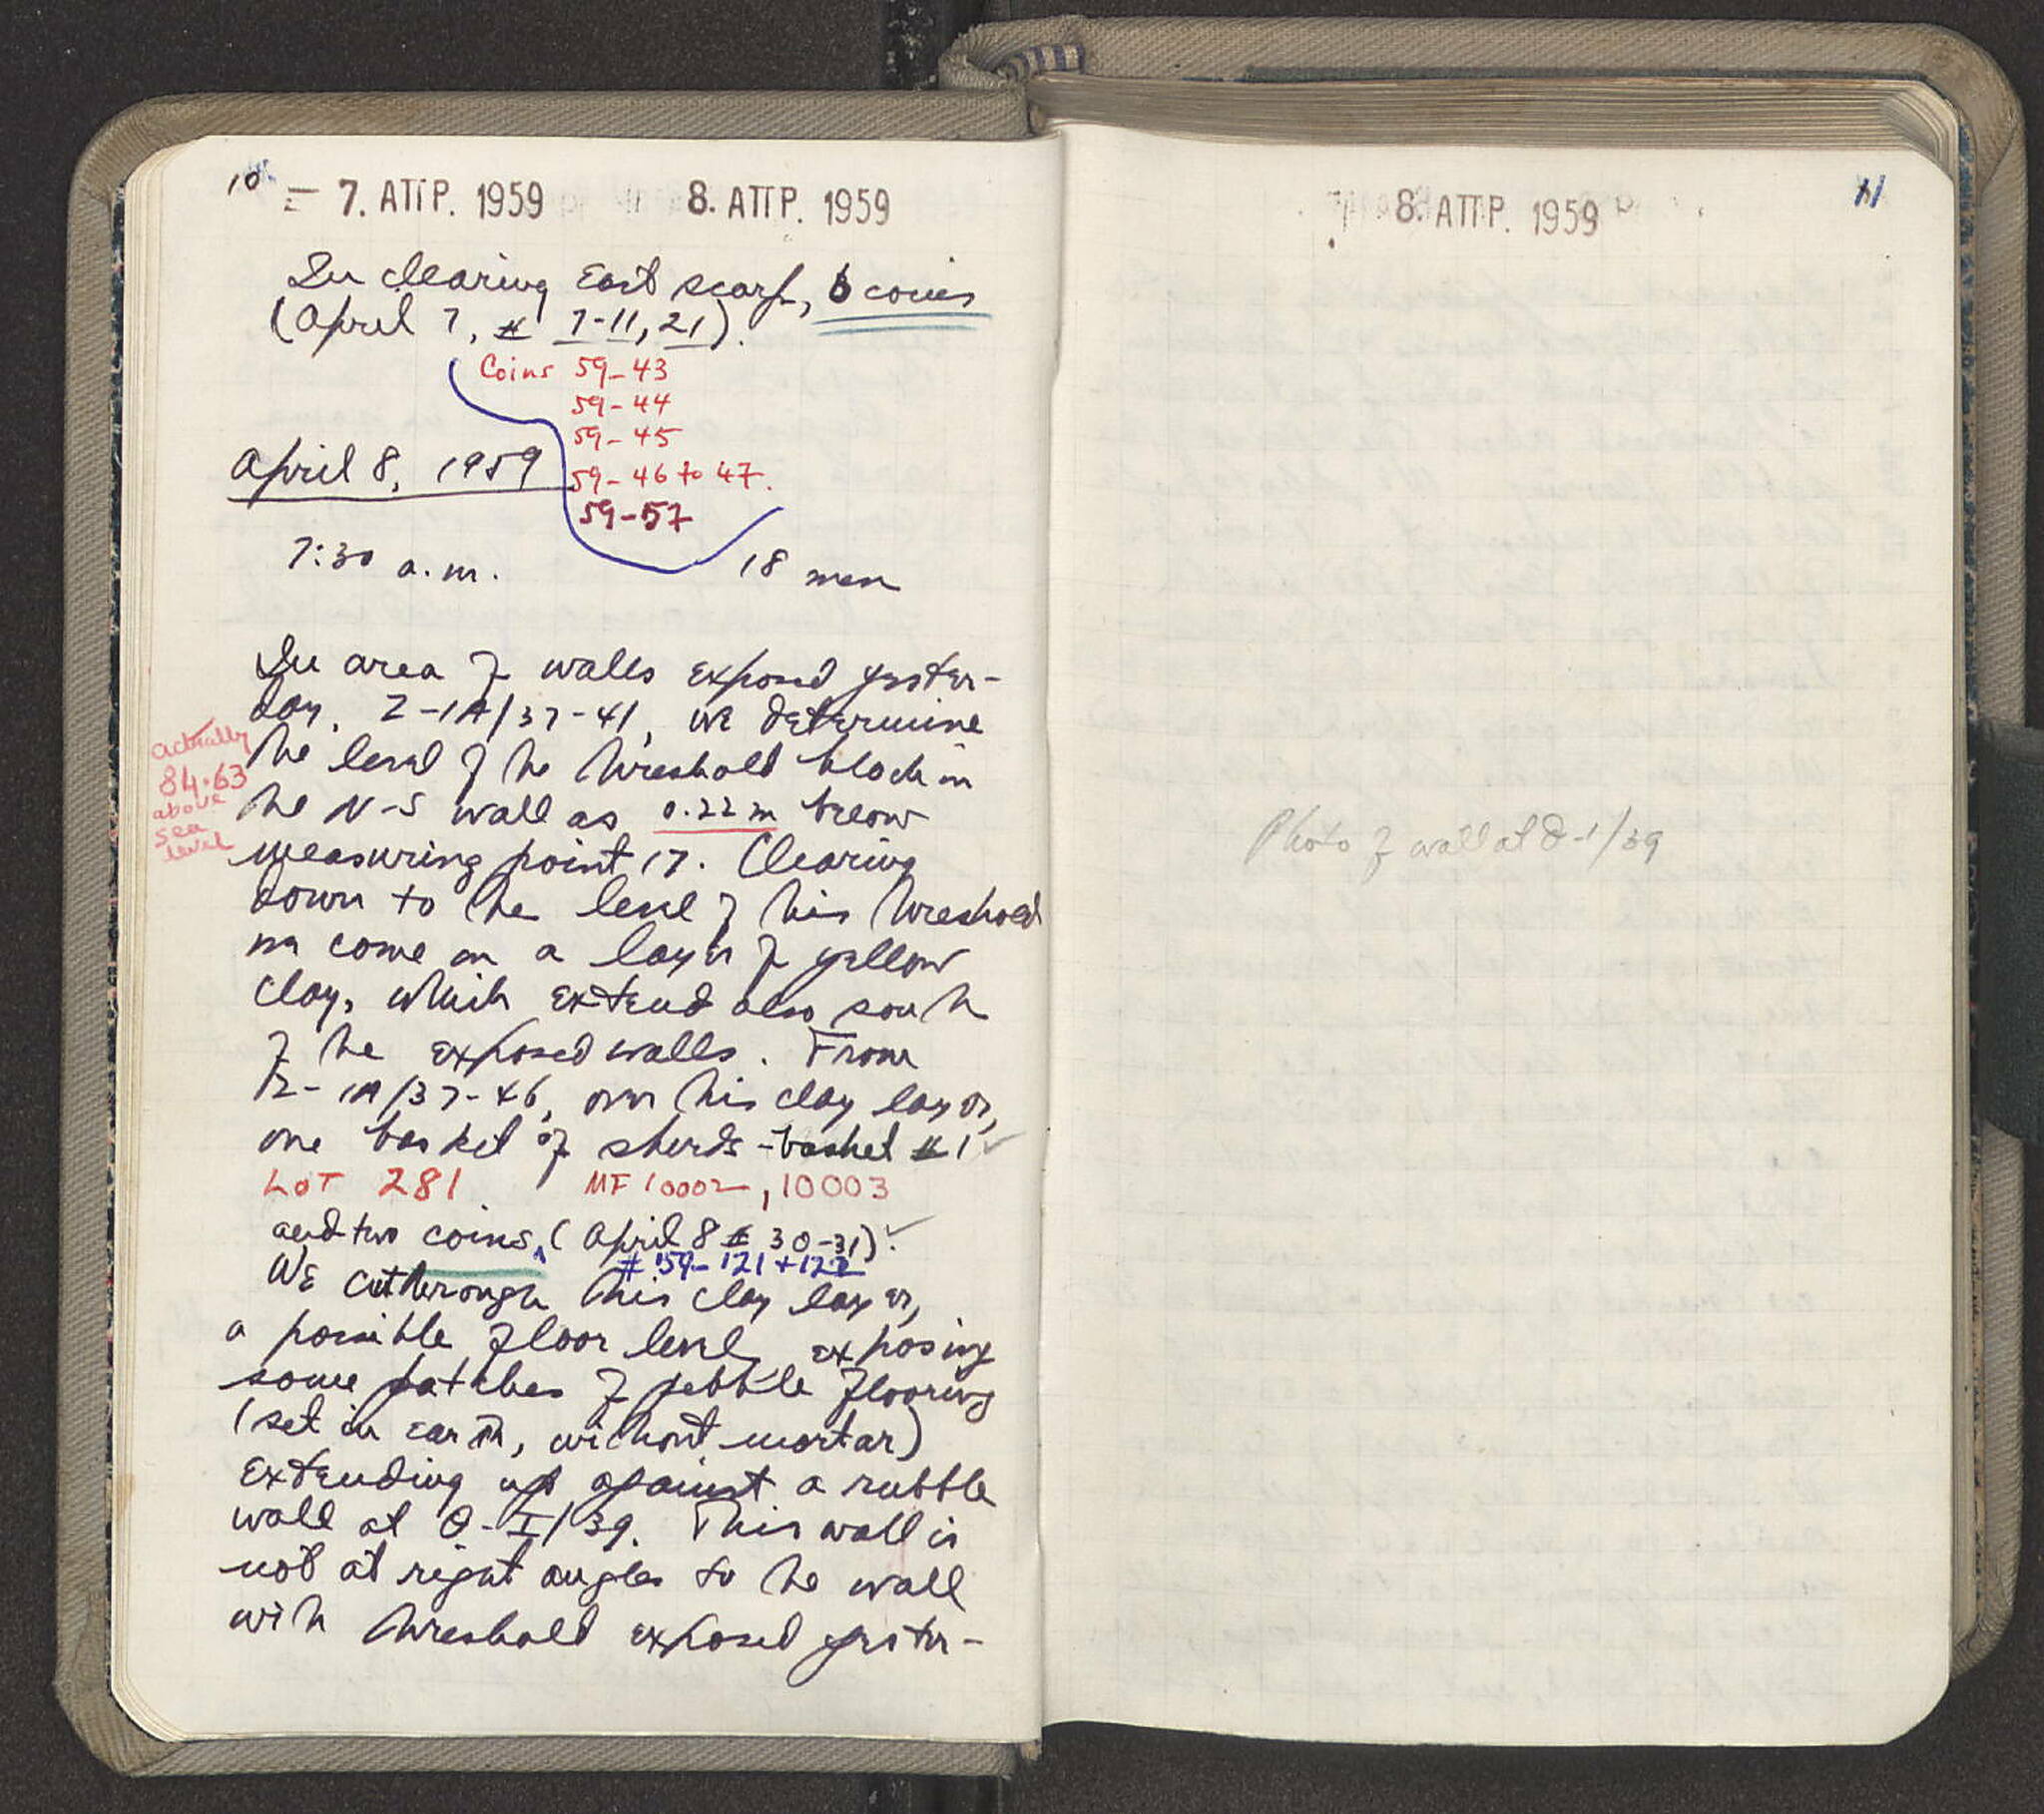 10
= 7. ΑΠΡ. 1959 8. ΑΠΡ. 1959
In clearing East scarp, 6 coins
(April 7, # 7-11, 21).
Coins 59-43
59-44
59-45
59-46 to 47.
59-57
April 8, 1959
7:30 a.m. 18 men
In area of walls exposed yester-
day, Z-1A/37-41, we determine
the level of the threshold block in
the N-S wall as 0.22 m below
actually
84.63
above
sea
level
measuring point 17. Clearing
down to the level of this threshold
we come on a layer of yellow
clay, which extend also south
of the exposed walls. From
-1A/37-46, over this clay layer,
one basket of sherds - basket #1 ✓
LOT 281 MF 10002, 10003
and two coins, (April 8 # 30-31). ✓
# 59-121+122
We cut through this clay layer,
a possible floor level, exposing
some patches of pebble flooring
(set in earth, without mortar)
extending up against a rubble
wall at Θ-I/39. This wall is
not at right angles to the wall
with threshold exposed yester-
11
8. ΑΠΡ. 1959
Photo of wall at Θ-1/39